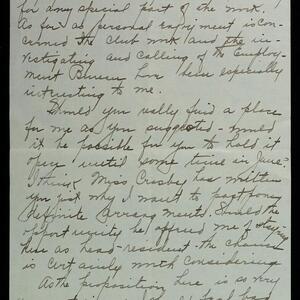 for any special part of the work.
As far as personal enjoyment is con-
cerned the club work and the in-
vestigating and calling of the Employ-
ment Bureau have been especially
interesting to me.
Should you really find a place
for me as you suggested - would
it be possible for you to hold it
open until some time in June?
I think Miss Crosby has written
you just why I want to postpone
definite arrangements. Should the
opportunity be afforded me of staying
here as head-resident - the chance
is certainly worth considering
As the proposition here is so very